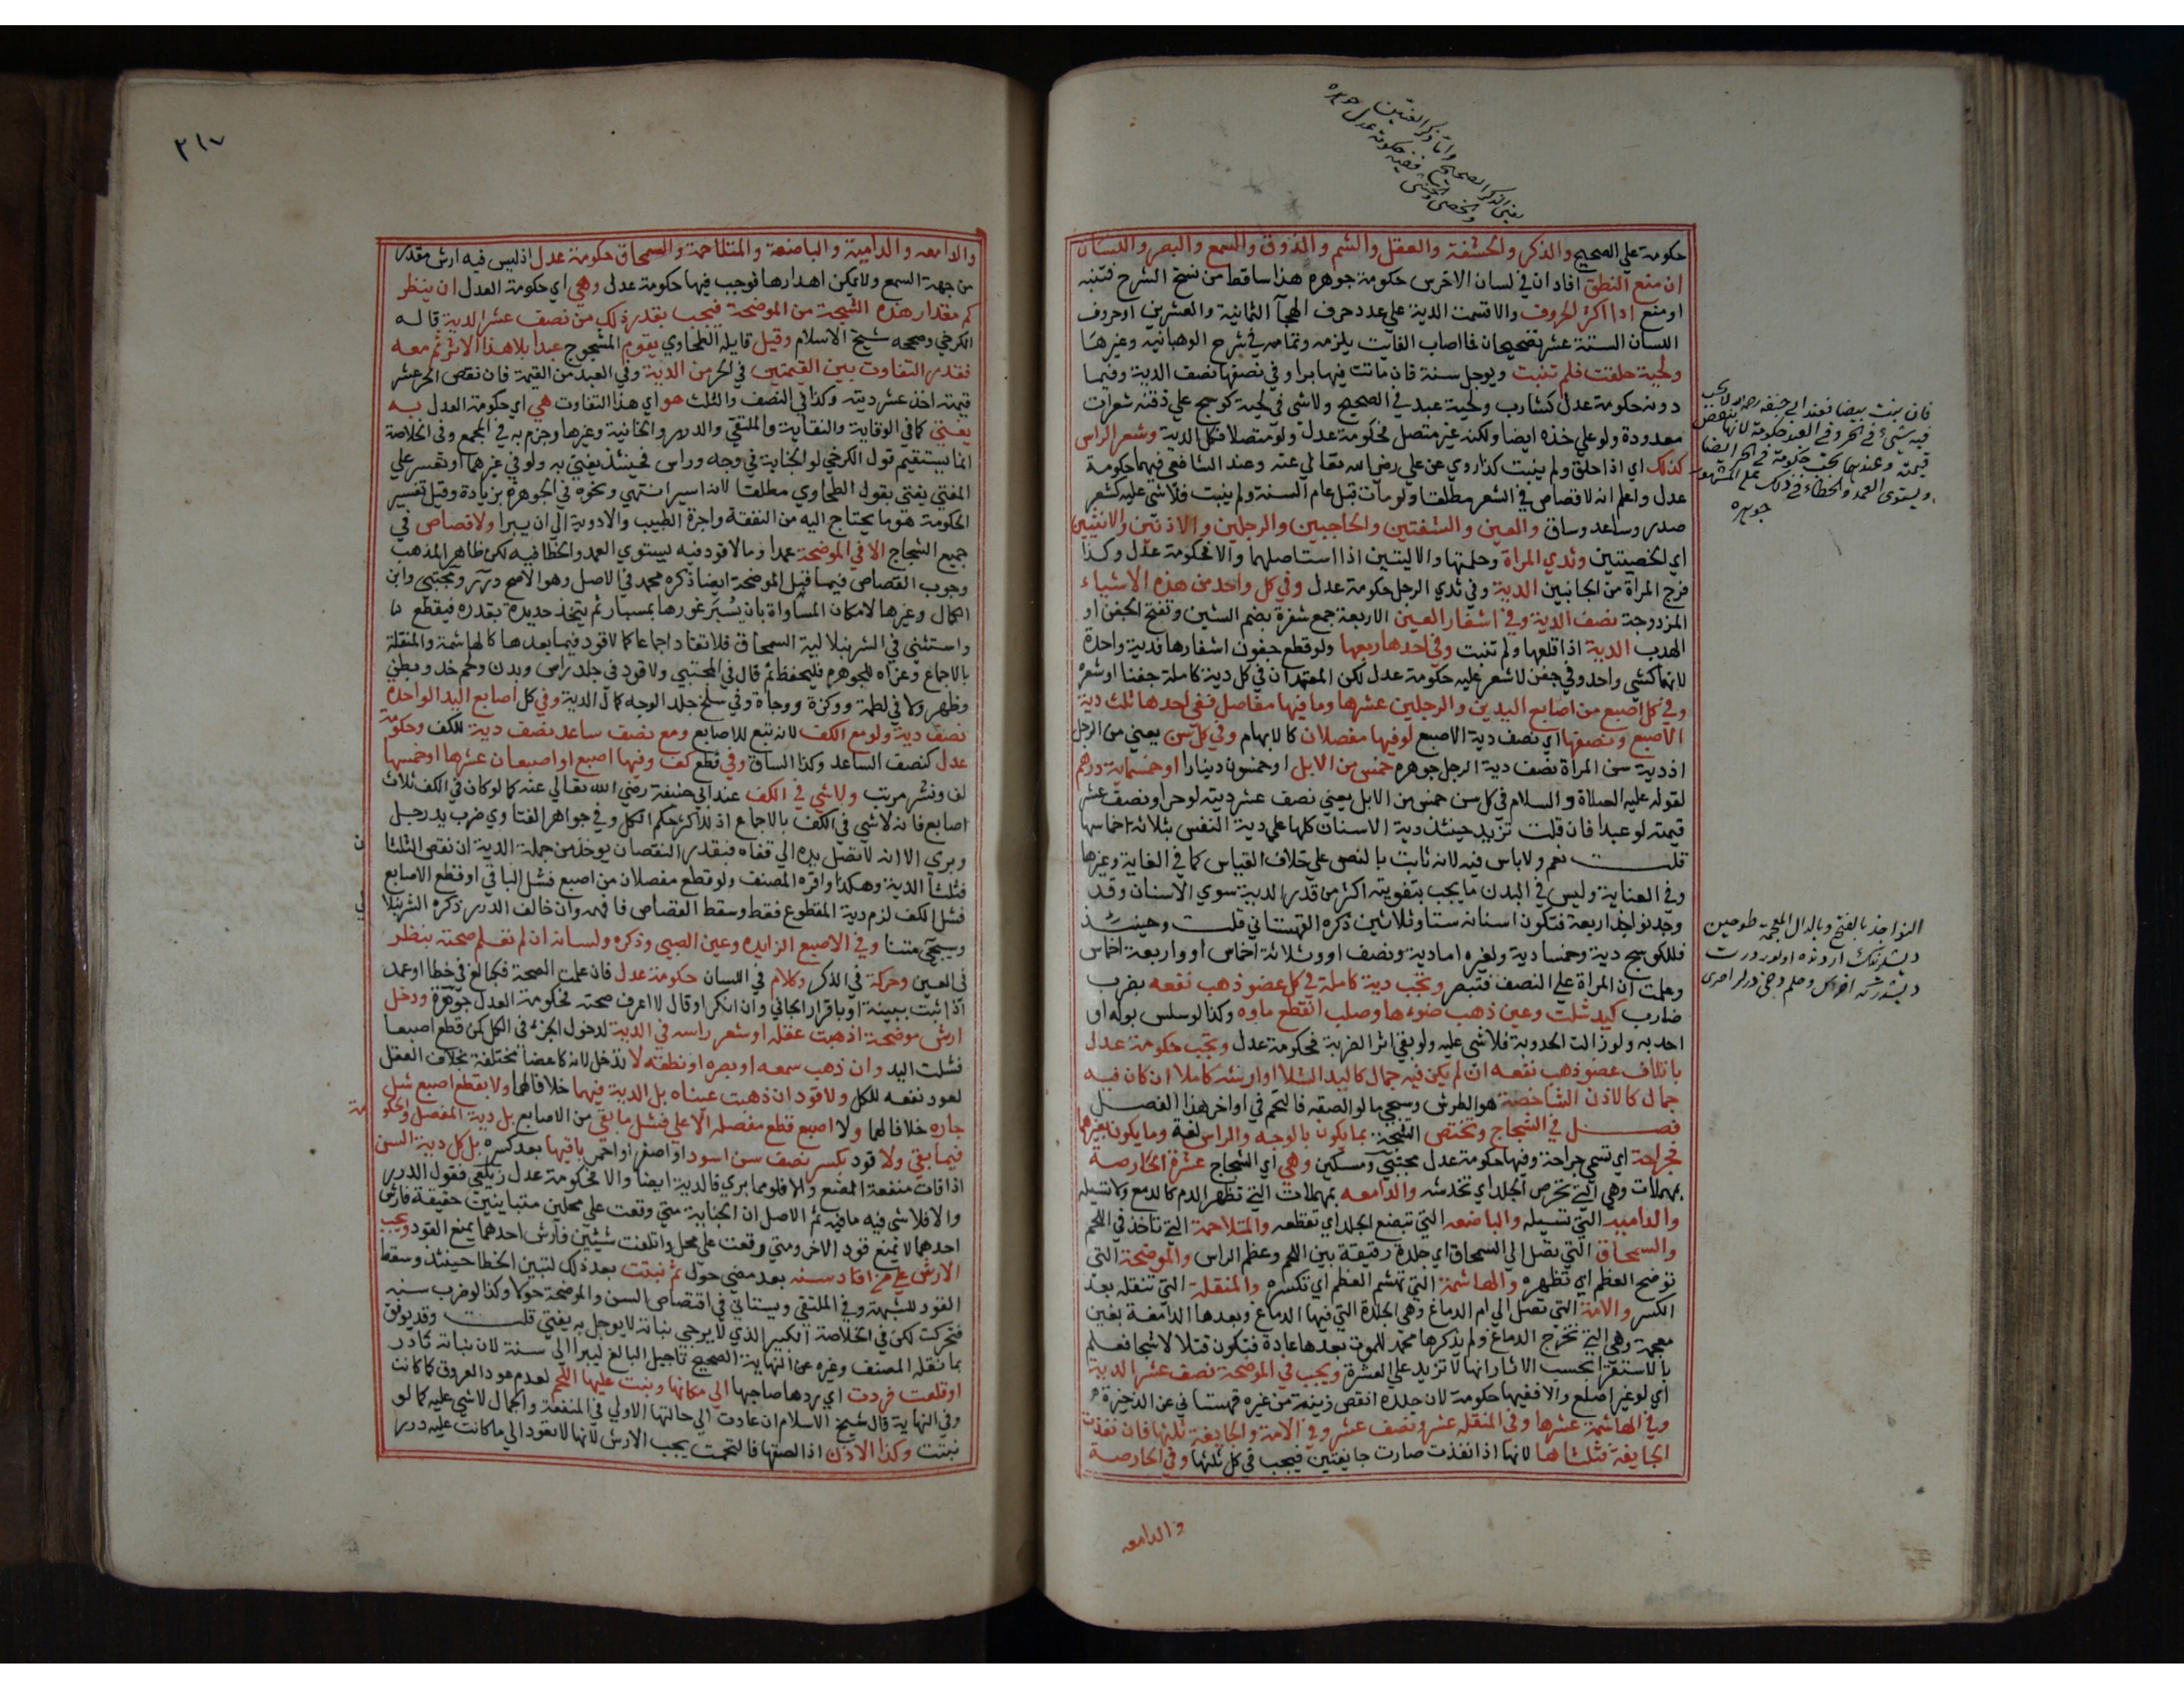 يعني الذكر الصحيح واما ذكر العنين
والخصي والخنثى ففيه حكومة عدل جوهره
حكومة علي الصحيح والذكر والحشفة والعقل والشم والذوق والسمع والبصر واللسان
ان منع النطق افاد ان في لسان الاخرس حكومة جوهره هذا ساقط من نسخ الشرح فتنبه
او منع اداا كثر الحروف والا قسمت الدية علي عدد حرف الهجآ الثمانية والعشرين او حروف
اللسان الستة عشر تصحيحان فما اصاب الفايت يلزمه وتمامه في شرح الوهبانيه وغيرها
ولحية حلقت فلم تنبت ويوجل سنة فان مات فيها برا وفي نصفها نصف الدية وفيما
دونه حكومة عدل كشارب ولحية عبد في الصحيح ولا شي في لحية كوسج علي ذقنه شعرات
معدودة ولو علي خده ايضا ولكنه غير متصل فحكومة عدل ولو متصلا فكل الدية وشعر الراس
كذلك اي اذا حلق ولم ينبت كذا روي عن علي رضي الله تعالي عنه وعند الشافعي فيهما حكومة
عدل واعلم انه لا قصاص في الشعر مطلقا ولو مات قبل عام السنة ولم ينبت فلا شي عليه كشعر
صدر وساعد وساق والعين والشفتين والحاجبين والرجلين والاذنين والانثيين
اي الخصيتين وثدي المراة وحلمتها والاليتين اذا استاصلهما والا فحكومة عدل وكذا
فرج المراة من الجانبين الدية وفي ثدي الرجل حكومة عدل وفي كل واحد من هذه الاشياء
المزدوجة نصف الدية وفي اشفار العين الاربعة جمع شفرة بضم الشين وتفتح الجفن او
الهدب الدية اذا قلعها ولم تنبت وفي احدها ربعها ولو قطع جفون اشفارها فدية واحدة
لانهما كشي واحد وفي جفن لا شعر عليه حكومة عدل لكن المعتمد ان في كل دية كاملة جفنا او شعرة
وفي كل اصبع من اصابع اليدين والرجلين عشرها وما فيها مفاصل ففي احدها ثلث دية
الاصبع ونصفها اي نصف دية الاصبع لو فيها مفصلان كالابهام وفي كل سن يعني من الرجل
اذ دية سن المراة نصف دية الرجل جوهره خمس من الابل او خمسون دينارا او خمسماية درهم
لقوله عليه الصلاة والسلام في كل سن خمس من الابل يعني نصف عشر ديته لو حرا ونصف عشر
قيمته لو عبدا فان قلت تزيد حينئذ دية الاسنان كلها علي دية النفس بثلاثة اخماسها
قلت نعم ولا باس فيه لانه ثابت بالنص علي خلاف القياس كما في الغاية وغيرها
وفي العناية وليس في البدن ما يجب بتفويته اكثر من قدر الدية سوي الاسنان وقد
توجد نواجذ اربعة فتكون اسنانه ستا وثلاثين ذكره القهستاني قلت وحينئذ
فللكوسج دية وخمسا دية ولغيره اما دية ونصف او وثلاثة اخماس او واربعة اخماس
وعلمت ان المراة علي النصف فتبصر وتجب دية كاملة في كل عضو ذهب نفعه بضرب
ضارب كيد شلت وعين ذهب ضوءها وصلب انقطع ماوه وكذا لو سلس بوله او
احدبه ولو زالت الحدوبة فلا شي عليه ولو بقي اثر الضربة فحكومة عدل وتجب حكومة عدل
باتلاف عضو ذهب نفعه ان لم يكن فيه جمال كاليد الشلا او ارشه كاملا ان كان فيه
جمال كالاذن الشاخصة هو الطرش وسيجي ما لو الصقه فالتحم في اواخر هذا الفصل
فصل في الشجاج وتختص الشجة بما يكون بالوجه والراس لغة وما يكون بغيرهما
فجراحة اي تسمي جراحة وفيها حكومة عدل مجتبي ومسكين وهي اي الشجاج عشرة الخارصة
بمهملات وهي التي تخرص الجلد اي تخدشه والدامعه بمهملات التي تظهر الدم كالدمع ولا تسيله
والداميه التي تسيله والباضعه التي تبضع الجلد اي تقطعه والمتلاحمة التي تاخذ في اللحم
والسمحاق التي تصل الي السمحاق اي جلدة رقيقة بين اللحم وعظم الراس والموضحة التي
توضح العظم اي تظهره والهاشمة التي تهشم العظم اي تكسره والمنقلة التي تنقله بعد
الكسر والامة التي تصل الي ام الدماغ وهي الجلدة التي فيها الدماغ وبعدها الدامغة بغين
معجمة وهي التي تخرج الدماغ ولم يذكرها محمد للموت بعدها عادة فتكون قتلا لا شجا فعلم
بالاستقرا بحسب الاثار انها لا تزيد علي العشرة ويجب في الموضحة نصف عشر الدية
اي لو غير اصلع والا ففيها حكومة لان جلده انقص زينة من غيره قهستاني عن الذخيرة
وفي الهاشمة عشرها وفي المنقله عشر ونصف عشر وفي الامة والجايفة ثلثها فان نفذت
الجايفة فثلثاها لانها اذا نفذت صارت جايفتين فيجب في كل ثلثها وفي الخارصة
والدامعه
فان نبت بيضا فعند ابي حنيفه رحمه الله لا يجب
فيه شيء في الحر وفي العبد حكومة لانها تنقص
قيمته وعندهما تجب حكومة في الحر ايضا
ويستوي العمد والخطاء في ذلك علي المشهور
جوهره
النواجذ بالفتح وبالذال المعجمة
٣١٧
والدامعه والدامية والباضعة والمتلاحمة والسمحاق حكومة عدل اذ ليس فيه ارش مقدر
من جهة السمع ولا يمكن اهدارها فوجب فيها حكومة عدل وهي اي حكومة العدل ان ينظر
كم مقدار هذه الشجة من الموضحة فيجب بقدر ذلك من نصف عشر الدية قاله
الكرخي وصححه شيخ الاسلام وقيل قايله الطحاوي يقوم المشجوج عبدا بلا هذا الاثر ثم معه
فقدر التفاوت بين القيمتين في الحر من الدية وفي العبد من القيمة فان نقص الحر عشر
قيمته اخذ عشر ديته وكذا في النصف والثلث هو اي هذا التفاوت هي اي حكومة العدل به
يفتي كما في الوقاية والنقاية والملتقي والدرر والخانية وغيرها وجزم به في المجمع وفي الخلاصة
انما يستقيم قول الكرخي لو الجناية في وجه وراس فحينئذ يفتي به ولو في غيرهما او تعسر علي
المفتي يفتي بقول الطحاوي مطلقا لانه ايسر انتهي ونحوه في الجوهرة بزيادة وقيل تفسير
الحكومة هو ما يحتاج اليه من النفقة واجرة الطبيب والادوية الي ان يبرا ولا قصاص في
جميع الشجاج الا في الموضحة عمدا وما لا قود فيه يستوي العمد والخطا فيه لكن ظاهر المذهب
وجوب القصاص فيما قبل الموضحة ايضا ذكره محمد في الاصل وهو الاصح درر ومجتبي وابن
الكمال وغيرها لامكان المساواة بان يسبر غورها بمسبار ثم يتخذ حديدة بقدره فيقطع
واستثني في الشرنبلالية السمحاق فلا تقاد اجماعا كما لا قود فيما بعدها كالهاشمة والمنقلة
بالاجماع وعزاه للجوهره فليحفظ ثم قال في المجتبي ولا قود في جلد راس وبدن ولحم خد وبطن
وظهر ولا في لطمة ووكزة ووجاة وفي سلخ جلد الوجه كمال الدية وفي كل اصابع اليد الواحدة
نصف دية ولو مع الكف لانه تبع للاصابع ومع نصف ساعد نصف دية للكف وحكومة
عدل كنصف الساعد وكذا الساق وفي قطع كف وفيها اصبع او اصبعان عشرها او خمسها
لف ونشر مرتب ولا شي في الكف عند ابي حنيفة رضي الله تعالي عنه كما لو كان في الكف ثلاث
اصابع فانه لا شي في الكف بالاجماع اذ للاكثر حكم الكل وفي جواهر الفتاوي ضرب يد رجل
وبري الا انه لا تصل يده الي قفاه فبقدر النقصان يوخذ من جملة الدية ان نقص الثلث
فثلث الدية وهكذا واقره المصنف ولو قطع مفصلان من اصبع فشل الباقي او قطع الاصابع
فشل الكف لزم دية المقطوع فقط وسقط القصاص فافهم وان خالف الدرر ذكره الشرنبلالي
وسيجي متنا وفي الاصبع الزايده وعين الصبي وذكره ولسانه ان لم تعلم صحته بنظر
في العين وحركة في الذكر وكلام في اللسان حكومة عدل فان علمت الصحة فكبالغ في خطا او عمد
اذا ثبت ببينة او باقرار الجاني وان انكر او قال لا اعرف صحته فحكومة العدل جوهرة ودخل
ارش موضحة اذهبت عقله او شعر راسه في الدية لدخول الجزء في الكل كمن قطع اصبعا
فشلت اليد وان ذهب سمعه او بصره او نطقه لا تدخل لانه كاعضا مختلفة بخلاف العقل
لعود نفعه للكل ولا قود ان ذهبت عيناه بل الدية فيهما خلافا لهما ولا يقطع اصبع شل
جاره خلافا لهما ولا اصبع قطع مفصله الاعلي فشل ما بقي من الاصابع بل دية المفصل والحكومة
فيما بقي ولا قود بكسر نصف سن اسود او اصفر او احمر باقيها بعد كسره بل كل دية السن
اذا فات منفعة المضغ والا فلو مما يري فالدية ايضا والا فحكومة عدل زيلعي فقول الدرر
والا فلا شي فيه ما فيه ثم الاصل ان الجناية متي وقعت علي محلين متباينين حقيقة فارش
احدهما لا يمنع قود الاخر ومتي وقعت علي محل واتلفت شيئين فارش احدهما يمنع القود ويجب
الارش علي من اقاد سنه بعد مضي حول ثم نبتت بعد ذلك لتبين الخطا حينئذ وسقط
القود للشبهة وفي الملتقي ويستاني في اقتصاص السن والموضحة حولا وكذا لو ضرب سنه
فتحركت لكن في الخلاصة الكبير الذي لا يرجي نباته لا يوجل به يفتي قلت وقد يوفق
بما نقله المصنف وغيره عن النهاية الصحيح تاجيل البالغ ليبرا لا الي سنة لان نباته نادر
او قلعت فردت اي ردها صاحبها الي مكانها ونبت عليها اللحم لعدم عود العروق كما كانت
وفي النهاية قال شيخ الاسلام ان عادت الي حالتها الاولي في المنفعة والجمال لا شي عليه كما لو
نبتت وكذا الاذن اذا الصقها فالتحمت يجب الارش لانها لا تعود الي ما كانت عليه درر